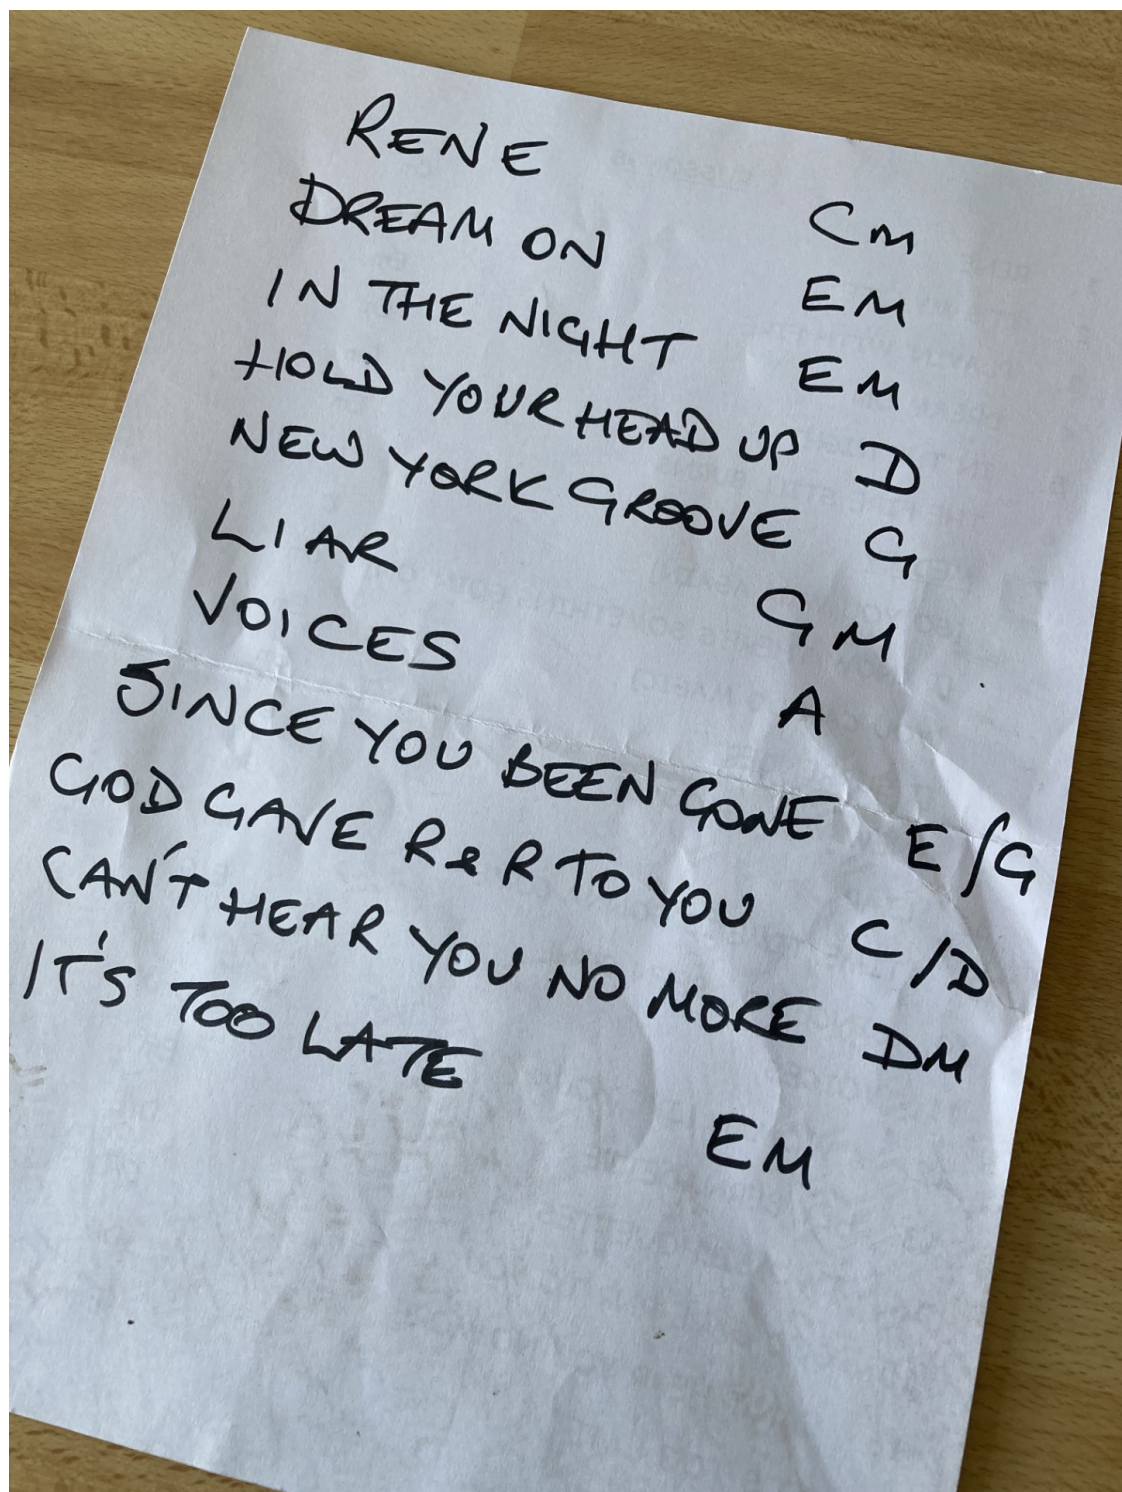 RENE CM
DREAM ON EM
IN THE NIGHT EM
HOLD YOUR HEAD UP D
NEW YORK GROOVE G
LIAR GM
VOICES A
SINCE YOU BEEN GONE E/G
GOD GAVE R & R TO YOU C/D
CAN'T HEAR YOU NO MORE DM
IT'S TOO LATE EM